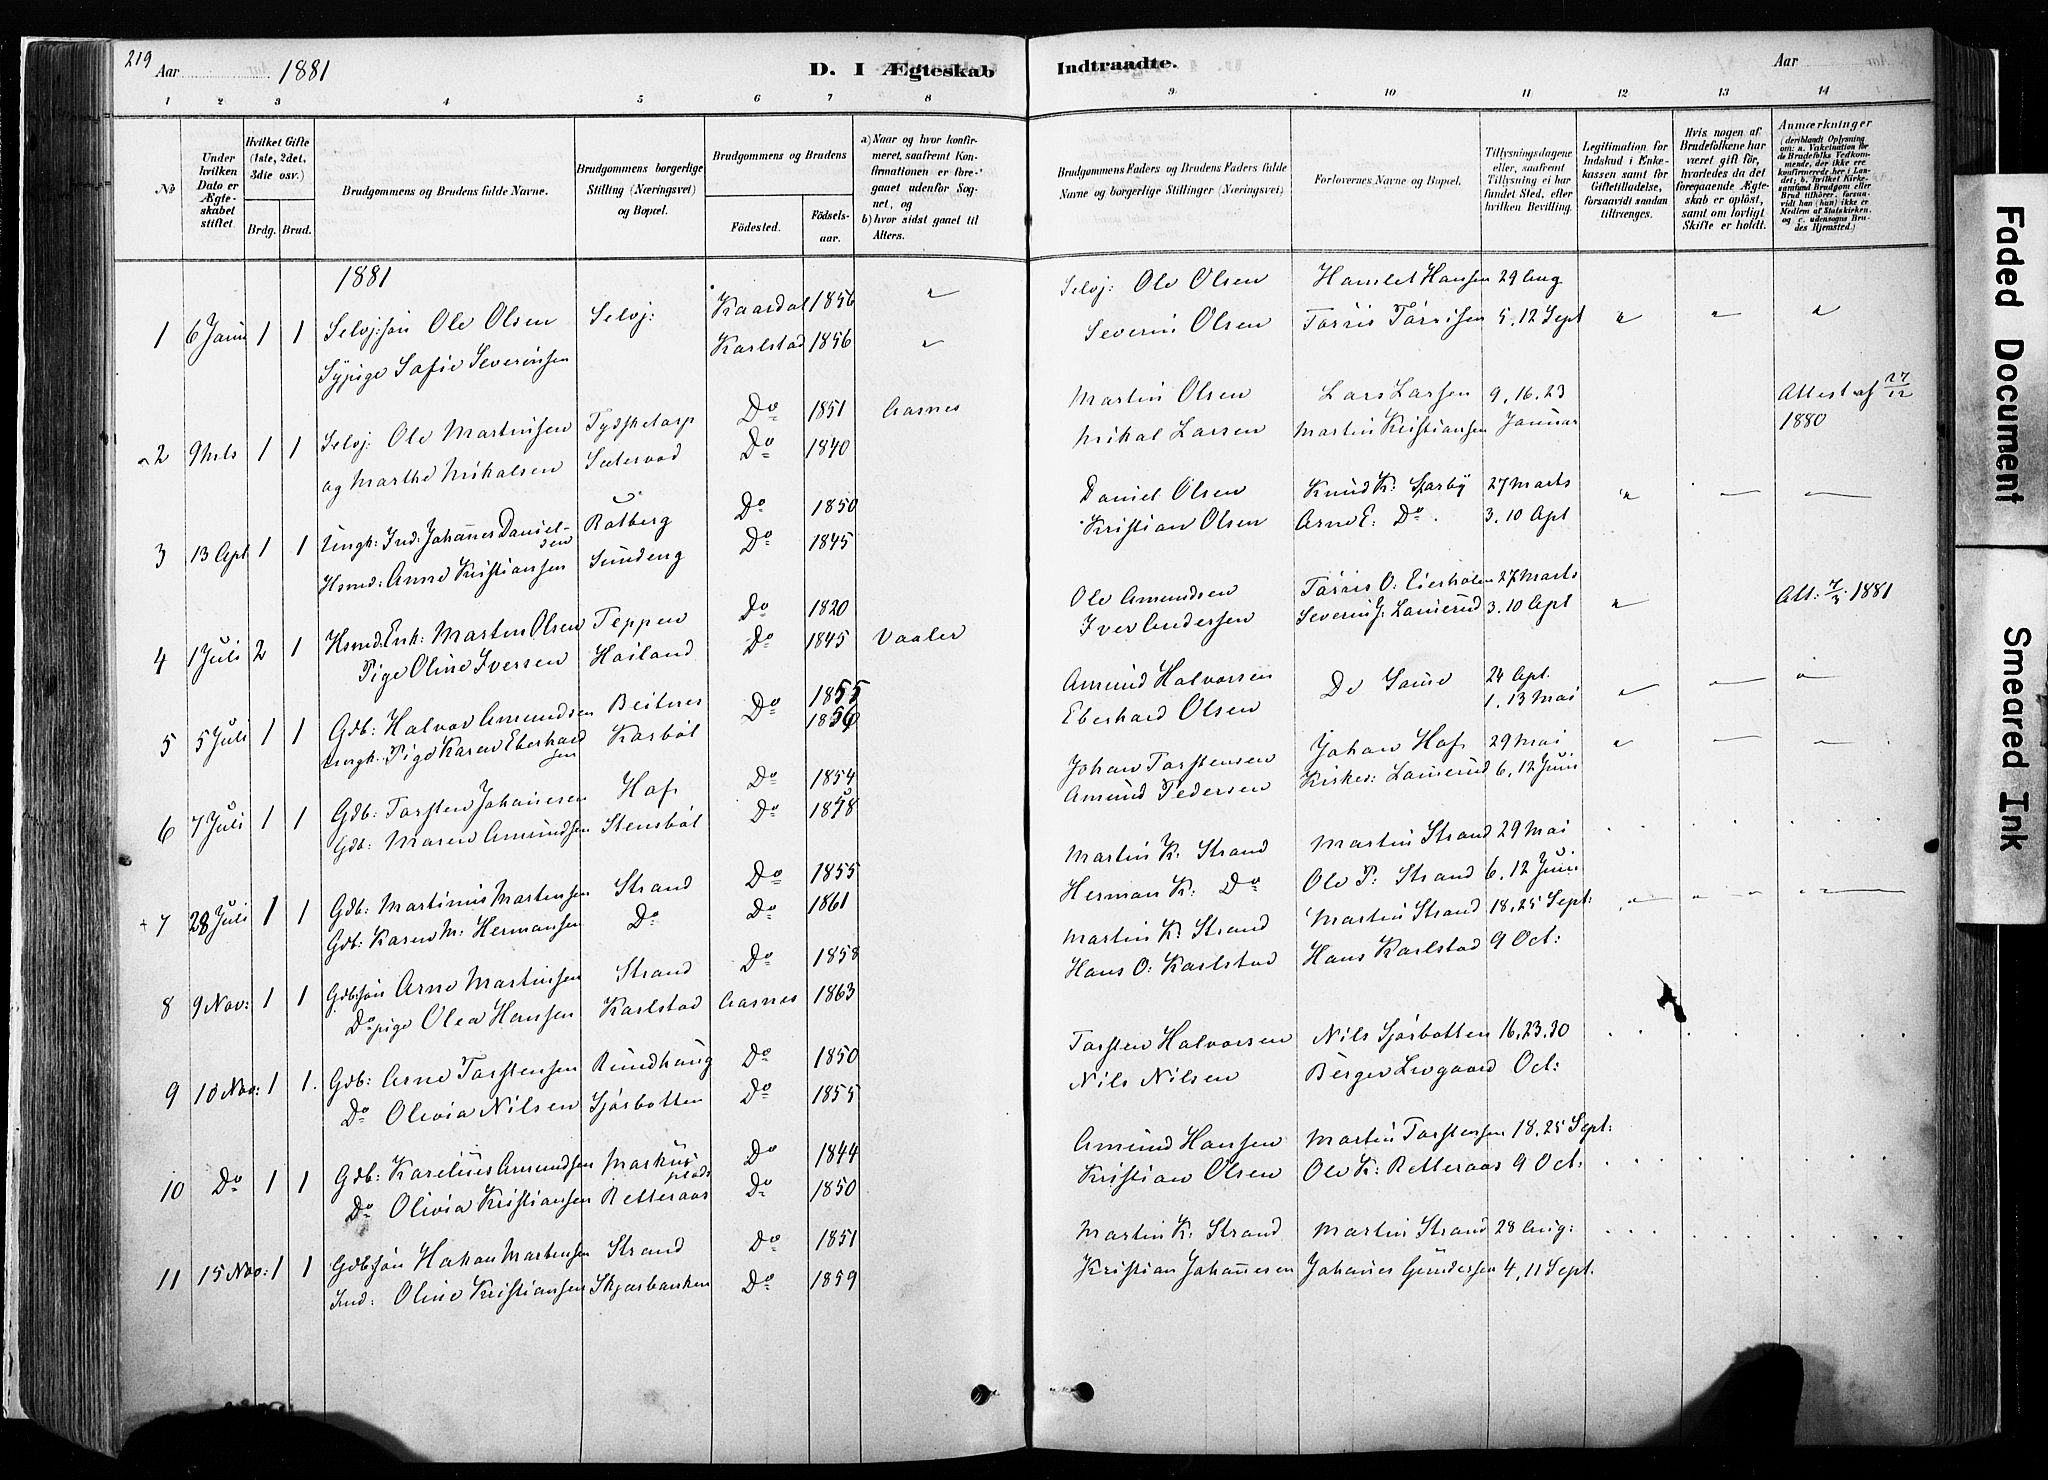 219
Aar 1881 D. I Ægteskab Indtraadte. Aar
1 2 3 4 5 6 7 8 9 10 11 12 13 14
No
Under hvilken Dato er Ægteskabet stiftet.
Hvilket Gifte (1ste, 2det, 3die osv.)
Brdg. Brud.
Brudgommens og Brudens fulde Navne.
Brudgommens borgerlige Stilling (Næringsvei) og Bopæl.
Brudgommens og Brudens
Födested. Födsels-aar.
a) Naar og hvor konfirmeret, saafremt Konfirmationen er foregaaet udenfor Sognet, og
b) hvor sidst gaaet til Alters.
Brudgommens Faders og Brudens Faders fulde Navne og borgerlige Stillinger (Næringsvei)
Forlovernes Navne og Bopæl.
Tillysningsdagene eller, saafremt Tillysning ei har fundet Sted, efter hvilken Bevilling.
Legitimation for Indskud i Enkekassen samt for Giftetilladelse, forsaavidt saadan tiltrænges.
Hvis nogen af Brudefolkene har været gift för, hvorledes da det foregaaende Ægteskab er oplöst, samt om lovligt Skifte er holdt.
Anmærkninger
(deriblandt Oplysning om: a. Vakcination for de Brudefolks Vedkommende, der ikke ere konfirmerede her i Landet; b. hvilket Kirkesamfund Brudgom eller Brud tilhörer, forsaavidt han (hun) ikke er Medlem af Statskirken, og c. udensogns Brudes Hjemsted.)
1881
1 6 Janu 1 1 Selvj:søn Ole Olsen Selvj: Kaardal 1856 " Selvj: Ole Olsen Hamlet Hansen 29 Aug
Sypige Sofie Severinsen Karlstad 1856 " Severin Olsen Tørris Tørrisen 5, 12 Sept " " "
2 9 Mts 1 1 Selvj: Ole Martinsen Tydsketorp Do 1851 Aasnes Martin Olsen Lars Larsen 9, 16, 23 Attest af 27/12
og Marthe Mikalsen Sætervod Do 1840 Mikal Larsen Martin Kristiansen Januar 1880
3 13 Apl 1 1 Ungk: Ind: Johannes Danielsen Rotberg Do 1850 Daniel Olsen Knud K: Sparby 27 Marts " — —
Hsmd: Anne Kristiansen Sundeng Do 1845 Kristian Olsen Arne E: Do 3. 10 Apl
4 1 Juli 2 1 Hsmd: Enk: Martin Olsen Teppen Do 1820 Ole Amundsen Tørris O: 27 Marts Att: 7/3 1881
Pige Oline Iversen Hoiland Do 1845 Vaaler Iver Andersen Severin J: Lamerud 3. 10 Apl "
5 5 Juli 1 1 Gdb: Halvor Amundsen Beitnes Do 1855 Amund Halvorsen De Samme 24 Apl.
Ungk. Pige Karen Eberhardsen Kasbøl 1856 Eberhard Olsen 1. 13 Mai " — "
6 7 Juli 1 1 Gdb: Torsten Johansen Hof Do 1854 Johan Torstensen Johan Hof 29 Mai " — —
Gdb: Maren Amundsen Stensbøl Do 1858 Amund Pedersen Kirkes: Lamerud 6, 12 Juni
7 28 Juli 1 1 Gdb: Martinus Martinsen Strand Do 1855 Martin K. Strand Martin Strand 29 Mai
Gdb: Karen M: Hermansen Do Do 1861 Herman K: Do Ole P: Strand 6, 12 Juni
8 9 Nov: 1 1 Gdbsøn Arne Martinsen Strand Do 1858 Martin K. Strand Martin Strand 18, 25 Sept:
Do pige Olea Hansen Karlstad Aasnes 1863 Hans O: Karlstad Hans Karlstad 9 Oct:
9 10 Nov: 1 1. Gdb: Arne Torstensen Rundhaug Do 1850 Torsten Halvorsen Nils Sjøsbotten 16, 23, 30
Do Olivia Nilsen Sjøsbotten Do 1855 Nils Nilsen Berger Løvgaard Oct:
10 Do 1 1 Gdb: Karelius Amundsen Markusplads Do 1844 Amund Hansen Martin Torstensen 18, 25 Sept:
Do Olivia Kristiansen Retteraas Do 1850 Kristian Olsen Ole K: Retteraas 9 Oct:
11 15 Nov: 1 1 Gdbsøn Hakan Martinsen Strand Do 1851 Martin K. Strand Martin Strand 28 Aug:
Ind: Oline Kristiansen Skjæsbanken Do 1859 Kristian Johannesen Johanes Gundersen 4, 11 Sept.
Faded Document
Smeared Ink